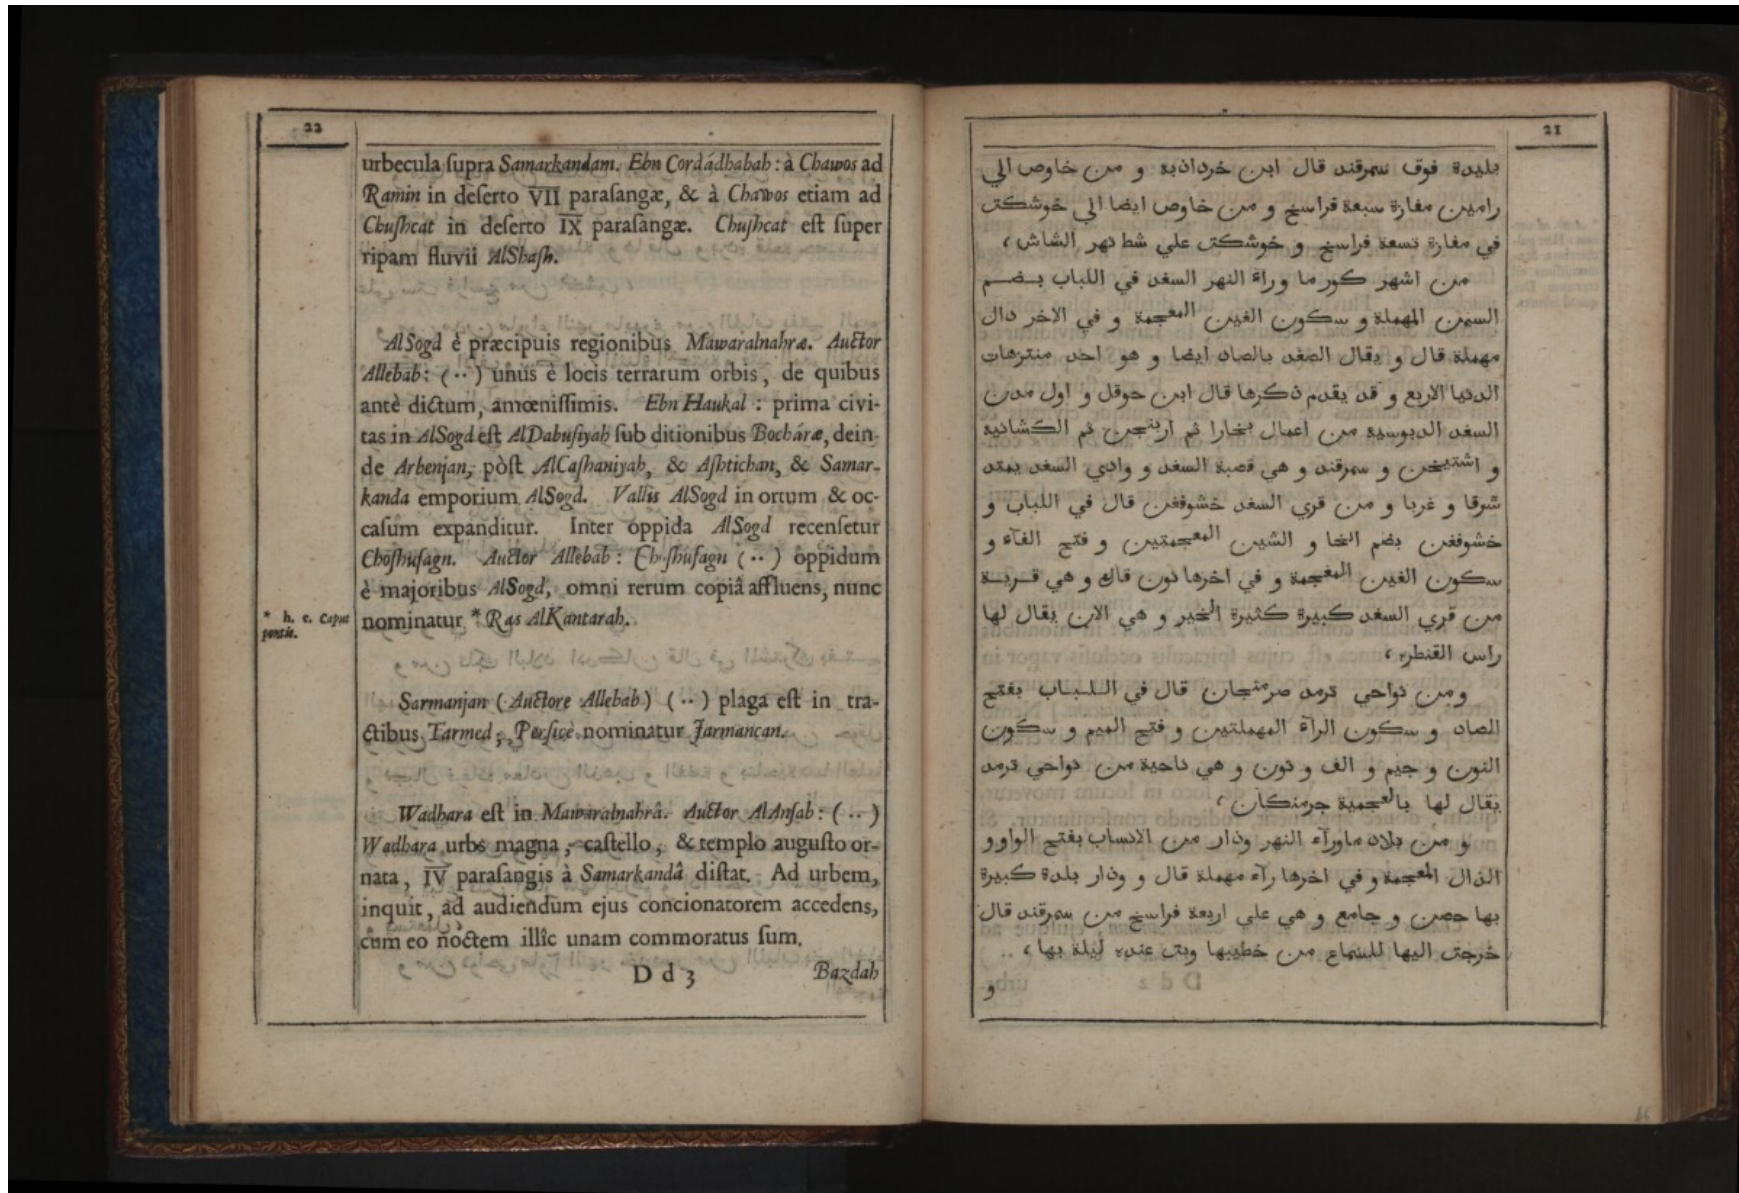 22
urbecula ſupra Samarkandam. Ebn Cordádhabah: à Chawos ad
Ramin in deſerto VII paraſangæ, & à Chawos etiam ad
Chuſhcat in deſerto IX paraſangæ. Chuſhcat eſt ſuper
ripam fluvii AlShaſh.
AlSogd è præcipuis regionibus Mawaralnahræ. Auctor
Allebab: (··) unus è locis terrarum orbis, de quibus
antè dictum, amœniſſimis. Ebn Haukal: prima civi-
tas in AlSogd eſt AlDabuſiyah ſub ditionibus Bocháræ, dein-
de Arbenjan, pòſt AlCaſhaniyah, & Aſhtichan, & Samar-
kanda emporium AlSogd. Vallis AlSogd in ortum & oc-
caſum expanditur. Inter oppida AlSogd recenſetur
Choſhufagn. Auctor Allebab: Choſhufagn (··) oppidum
è majoribus AlSogd, omni rerum copiâ affluens, nunc
nominatur * Ras AlKantarah.
* h. e. Caput
pontis.
Sarmanjan (Auctore Allebab) (··) plaga eſt in tra-
ctibus Tarmed, Perſicè nominatur Jarmancan.
Wadhara eſt in Mawaralnahrâ. Auctor AlAnſab: (··)
Wadhara urbs magna, caſtello, & templo auguſto or-
nata, IV paraſangis à Samarkandâ diſtat. Ad urbem,
inquit, ad audiendum ejus concionatorem accedens,
cum eo noctem illîc unam commoratus ſum.
D d 3 Bazdah
21
بليدة فوق سمرقند قال ابن خرداذبه و من خاوص الي
رامين مفازة سبعة فراسخ و من خاوص ايضا الي خوشكت
في مفازة تسعة فراسخ و خوشكت علي شط نهر الشاش ،
من اشهر كور ما وراء النهر السغد في اللباب بضم
السين المهملة و سكون الغين المعجمة و في الاخر دال
مهملة قال و يقال الصغد بالصاد ايضا و هو احد منتزهات
الدنيا الاربع و قد يقدم ذكرها قال ابن حوقل و اول مدن
السغد الدبوسية من اعمال بخارا ثم اربنجن ثم الكشانية
و اشتيخن و سمرقند و هي قصبة السغد و وادي السغد يمتد
شرقا و غربا و من قري السغد خشوفغن قال في اللباب و
خشوفغن بضم الخا و الشين المعجمتين و فتح الفآء و
سكون الغين المعجمة و في اخرها نون قال و هي قرية
من قري السغد كبيرة كثيرة الخير و هي الان يقال لها
راس القنطره ،
ومن نواحي ترمد صرمنجان قال في اللباب بفتح
الصاد و سكون الرآء المهملتين و فتح الميم و سكون
النون و جيم و الف و نون و هي ناحية من نواحي ترمد
يقال لها بالعجمية جرمنكان ،
و من بلاد ماورآء النهر وذار من الانساب بفتح الواو و
الذال المعجمة و في اخرها رآء مهملة قال و وذار بلدة كبيرة
بها حصن و جامع و هي علي اربعة فراسخ من سمرقند قال
خرجت اليها للسماع من خطيبها وبت عنده ليلة بها ،
و